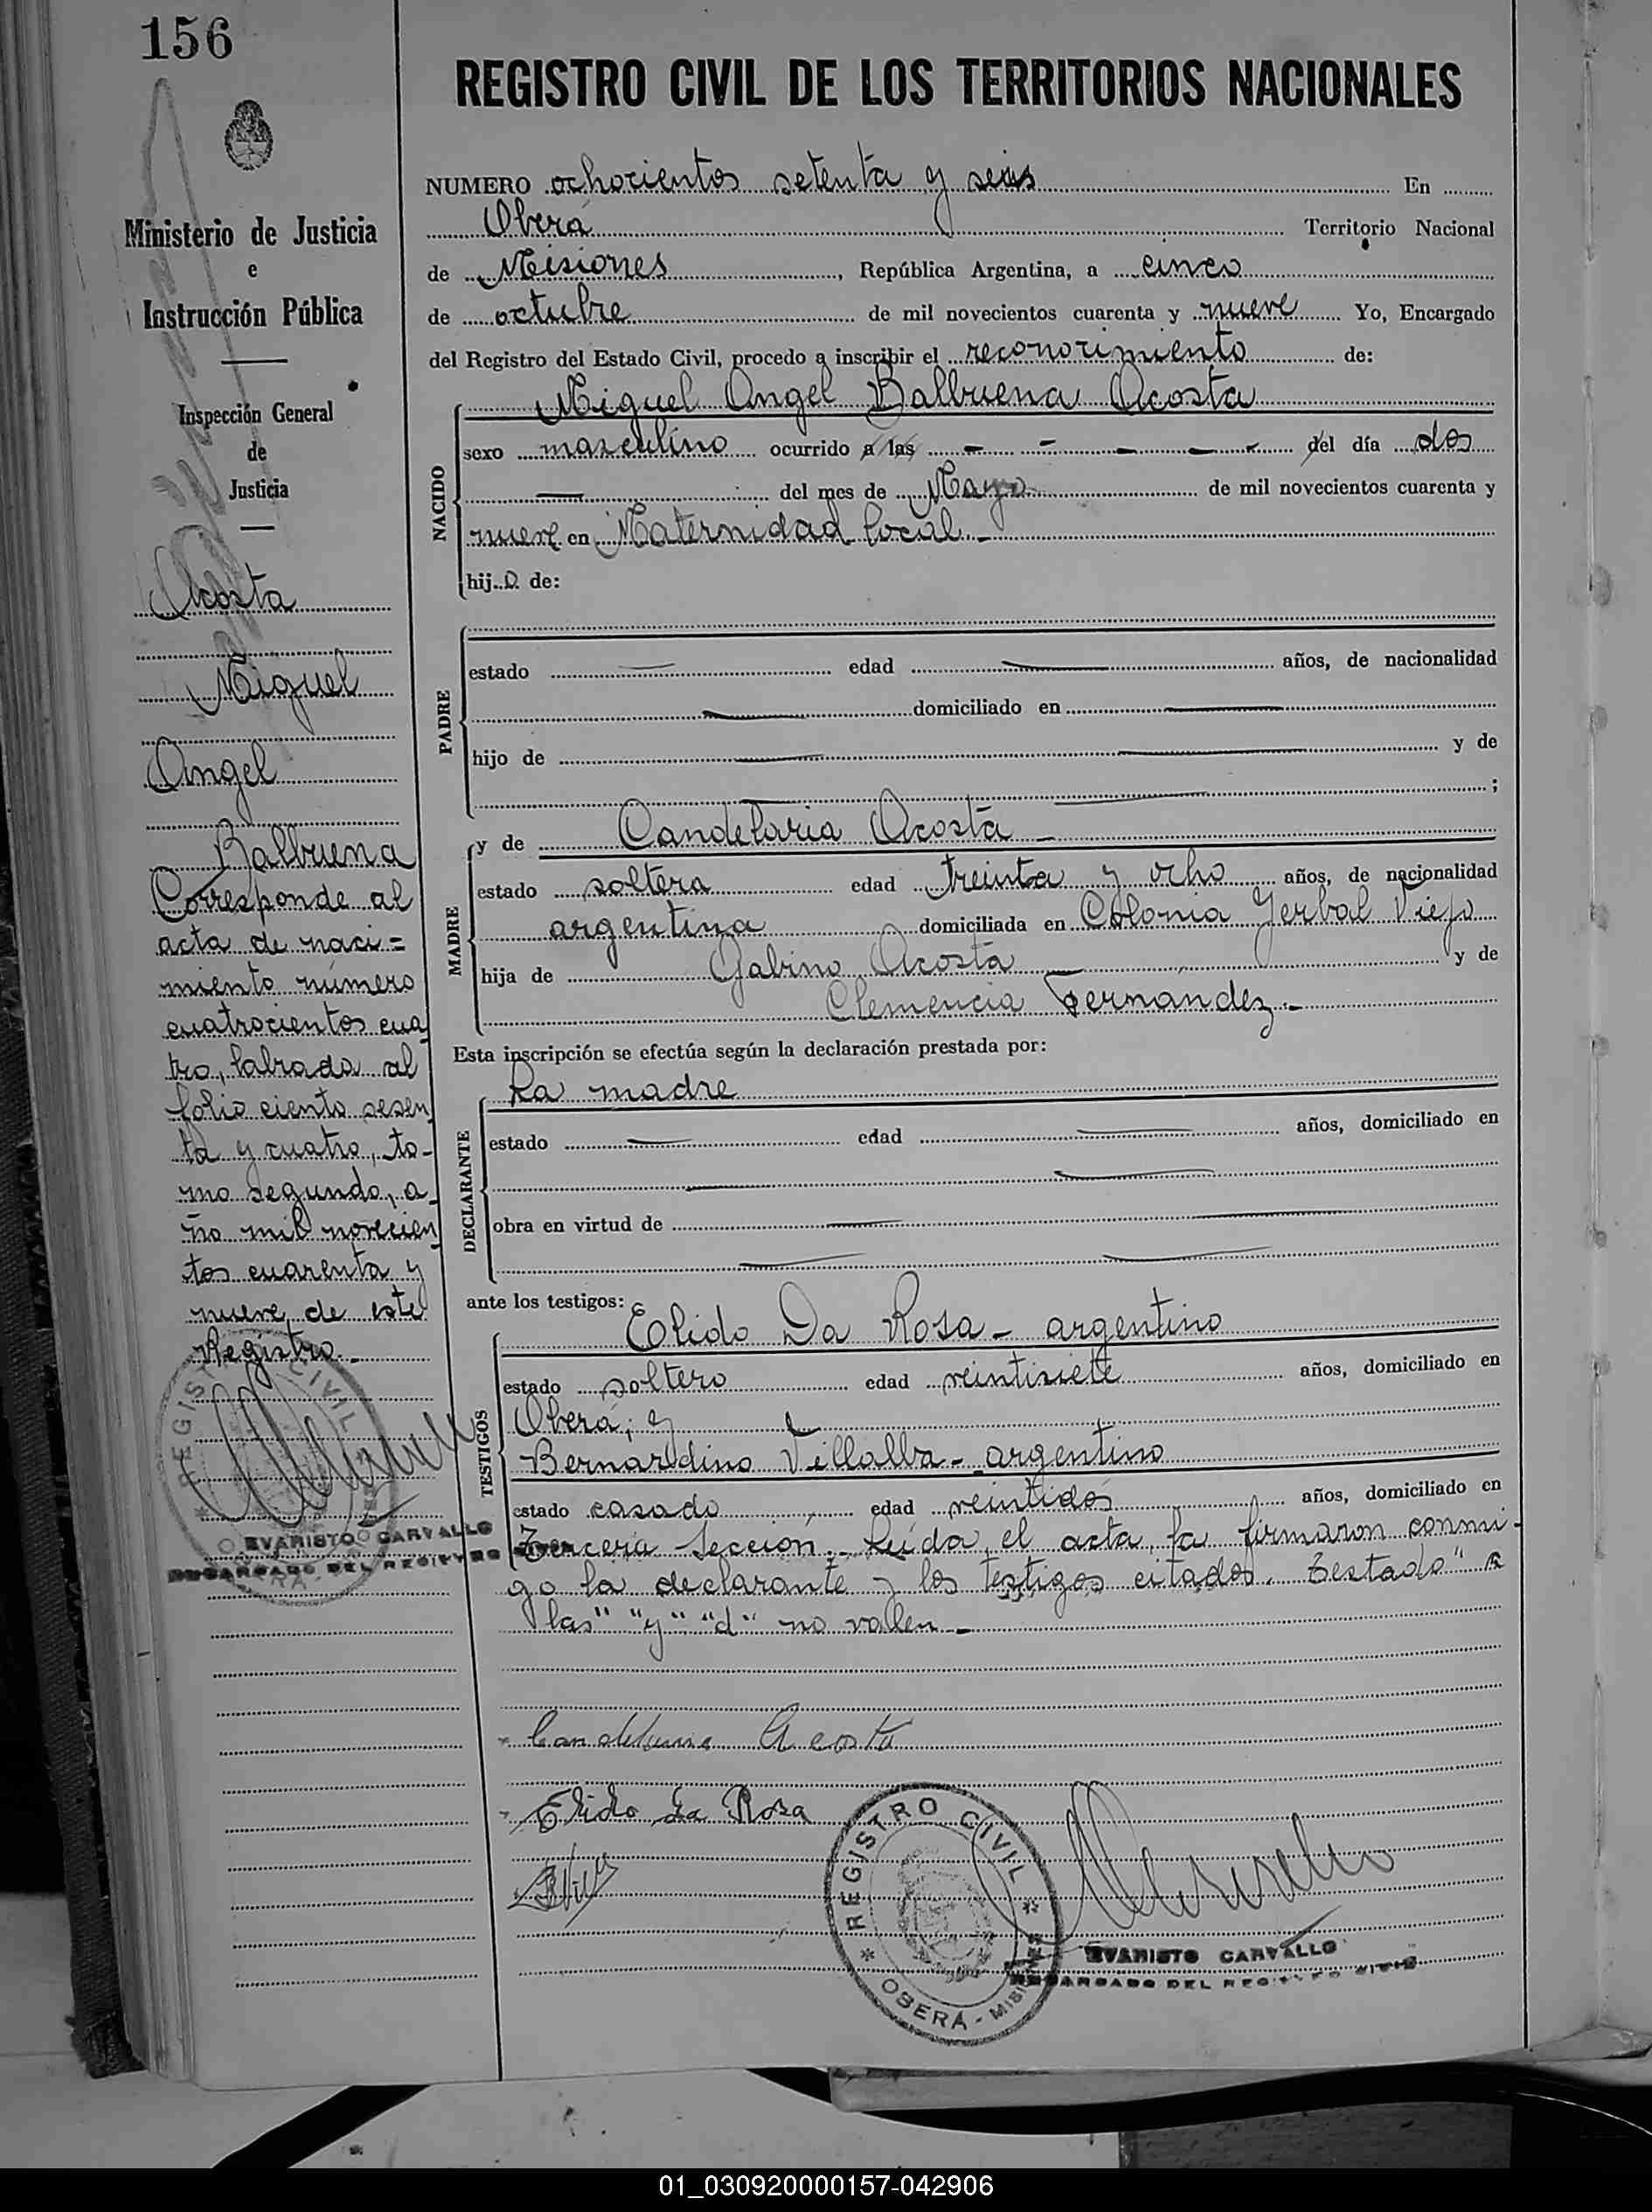 156
REGISTRO CIVIL DE LOS TERRITORIOS NACIONALES
Ministerio de Justicia
e
Instrucción Pública
Inspección General
de
Justicia
Acosta
Miguel
Angel
Balbuena
Corresponde al
acta de naci=
miento número
cuatrocientos cua
tro, labrada al
folio ciento sesen
ta y cuatro, to-
mo segundo, a-
ño mil novecien
tos cuarenta y
nueve, de este
Registro.-
REGISTRO CIVIL
EVARISTO CARVALLO
ENCARGADO DEL REGISTRO CIVIL
NUMERO ochocientos setenta y seis En
Oberá Territorio Nacional
de Misiones, República Argentina, a cinco
de octubre de mil novecientos cuarenta y nueve Yo, Encargado
del Registro del Estado Civil, procedo a inscribir el reconocimiento de:
NACIDO
Miguel Angel Balbuena Acosta
sexo masculino ocurrido a las - - - - - del día dos
— del mes de Mayo de mil novecientos cuarenta y
nueve en Maternidad local.-
hijo de:
PADRE
estado — edad — años, de nacionalidad
— domiciliado en —
hijo de — — y de
— — ;
MADRE
y de Candelaria Acosta -
estado soltera edad treinta y ocho años, de nacionalidad
argentina domiciliada en Colonia Yerbal Viejo
hija de Gabino Acosta — y de
Clemencia Fernandez.-
Esta inscripción se efectúa según la declaración prestada por:
DECLARANTE
La madre
estado — edad — años, domiciliado en
— —
obra en virtud de — —
— —
ante los testigos:
TESTIGOS
Elido Da Rosa - argentino
estado soltero edad veintisiete años, domiciliado en
Oberá; y
Bernardino Villalba - argentino
estado casado edad veintidos años, domiciliado en
Tercera Sección.- Leída el acta, la firmaron conmi-
go la declarante y los testigos citados. Testado" a
las" "y" "d" no vallen.-
Candelaria Acosta
Elido Da Rosa
REGISTRO CIVIL
OBERÁ - MISIONES
EVARISTO CARVALLO
ENCARGADO DEL REGISTRO CIVIL
01_030920000157-042906